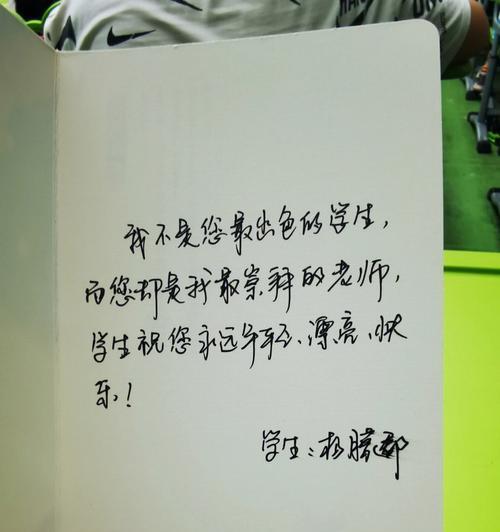 我不是您最出色的学生，
而您却是我最崇拜的老师，
学生祝您永远年轻、漂亮、快
乐！
学生：杨